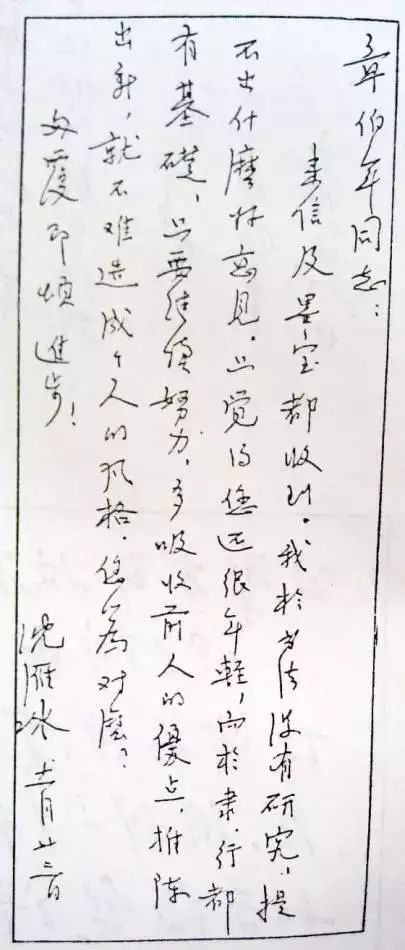 章伯年同志：
来信及墨宝都收到。我於书法没有研究，提
不出什麼好意见。只觉得您还很年轻，而於隶、行都
有基礎，只要继续努力，多吸收前人的優点，推陈
出新，就不难造成个人的风格。您以为对麼？
匆覆即頌進步！
沈雁冰 十一月廿三日